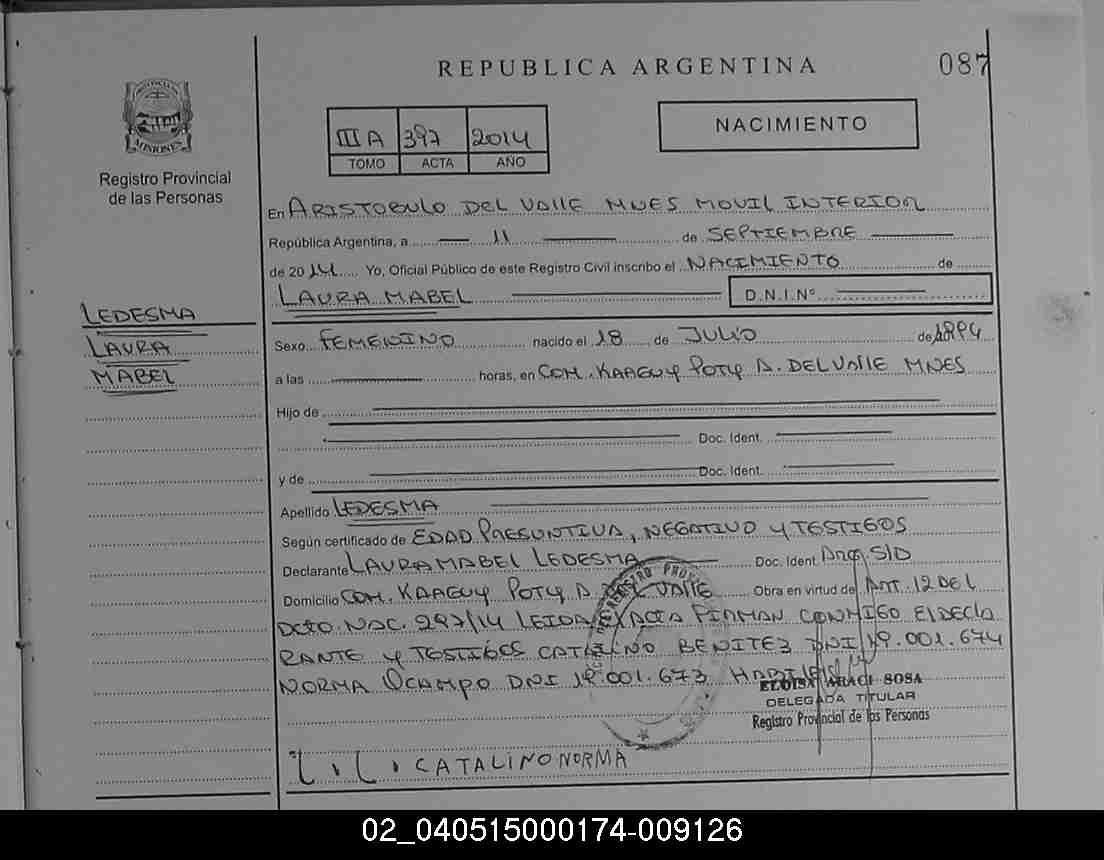 REPUBLICA ARGENTINA
087
PROVINCIA DE
MISIONES
Registro Provincial
de las Personas
III A 397 2014
TOMO ACTA AÑO
NACIMIENTO
En ARISTOBULO DEL VALLE MNES MOVIL INTERIOR
República Argentina, a 11 de SEPTIEMBRE
de 2014 Yo, Oficial Público de este Registro Civil inscribo el NACIMIENTO de
LAURA MABEL D.N.I.Nº
LEDESMA
LAURA
MABEL
Sexo FEMENINO nacido el 18 de JULIO de 1994
a las horas, en COM. KAAGUY POTY A. DEL VALLE MNES
Hijo de
Doc. Ident.
y de Doc. Ident.
Apellido LEDESMA
Según certificado de EDAD PRESUNTIVA, NEGATIVO Y TESTIGOS
Declarante LAURA MABEL LEDESMA Doc. Ident. Arg. S/D
Domicilio COM. KAAGUY POTY A DEL VALLE Obra en virtud de ART. 12 DEL
DCTO. NAC. 297/14 LEIDA EL ACTA FIRMAN CONMIGO El DECLA
RANTE Y TESTIGOS CATALINO BENITEZ DNI 19.001.674
NORMA OCAMPO DNI 19.001.673
ELOISA ARACI SOSA
DELEGADA TITULAR
Registro Provincial de las Personas
L . L . CATALINO NORMA
02_040515000174-009126